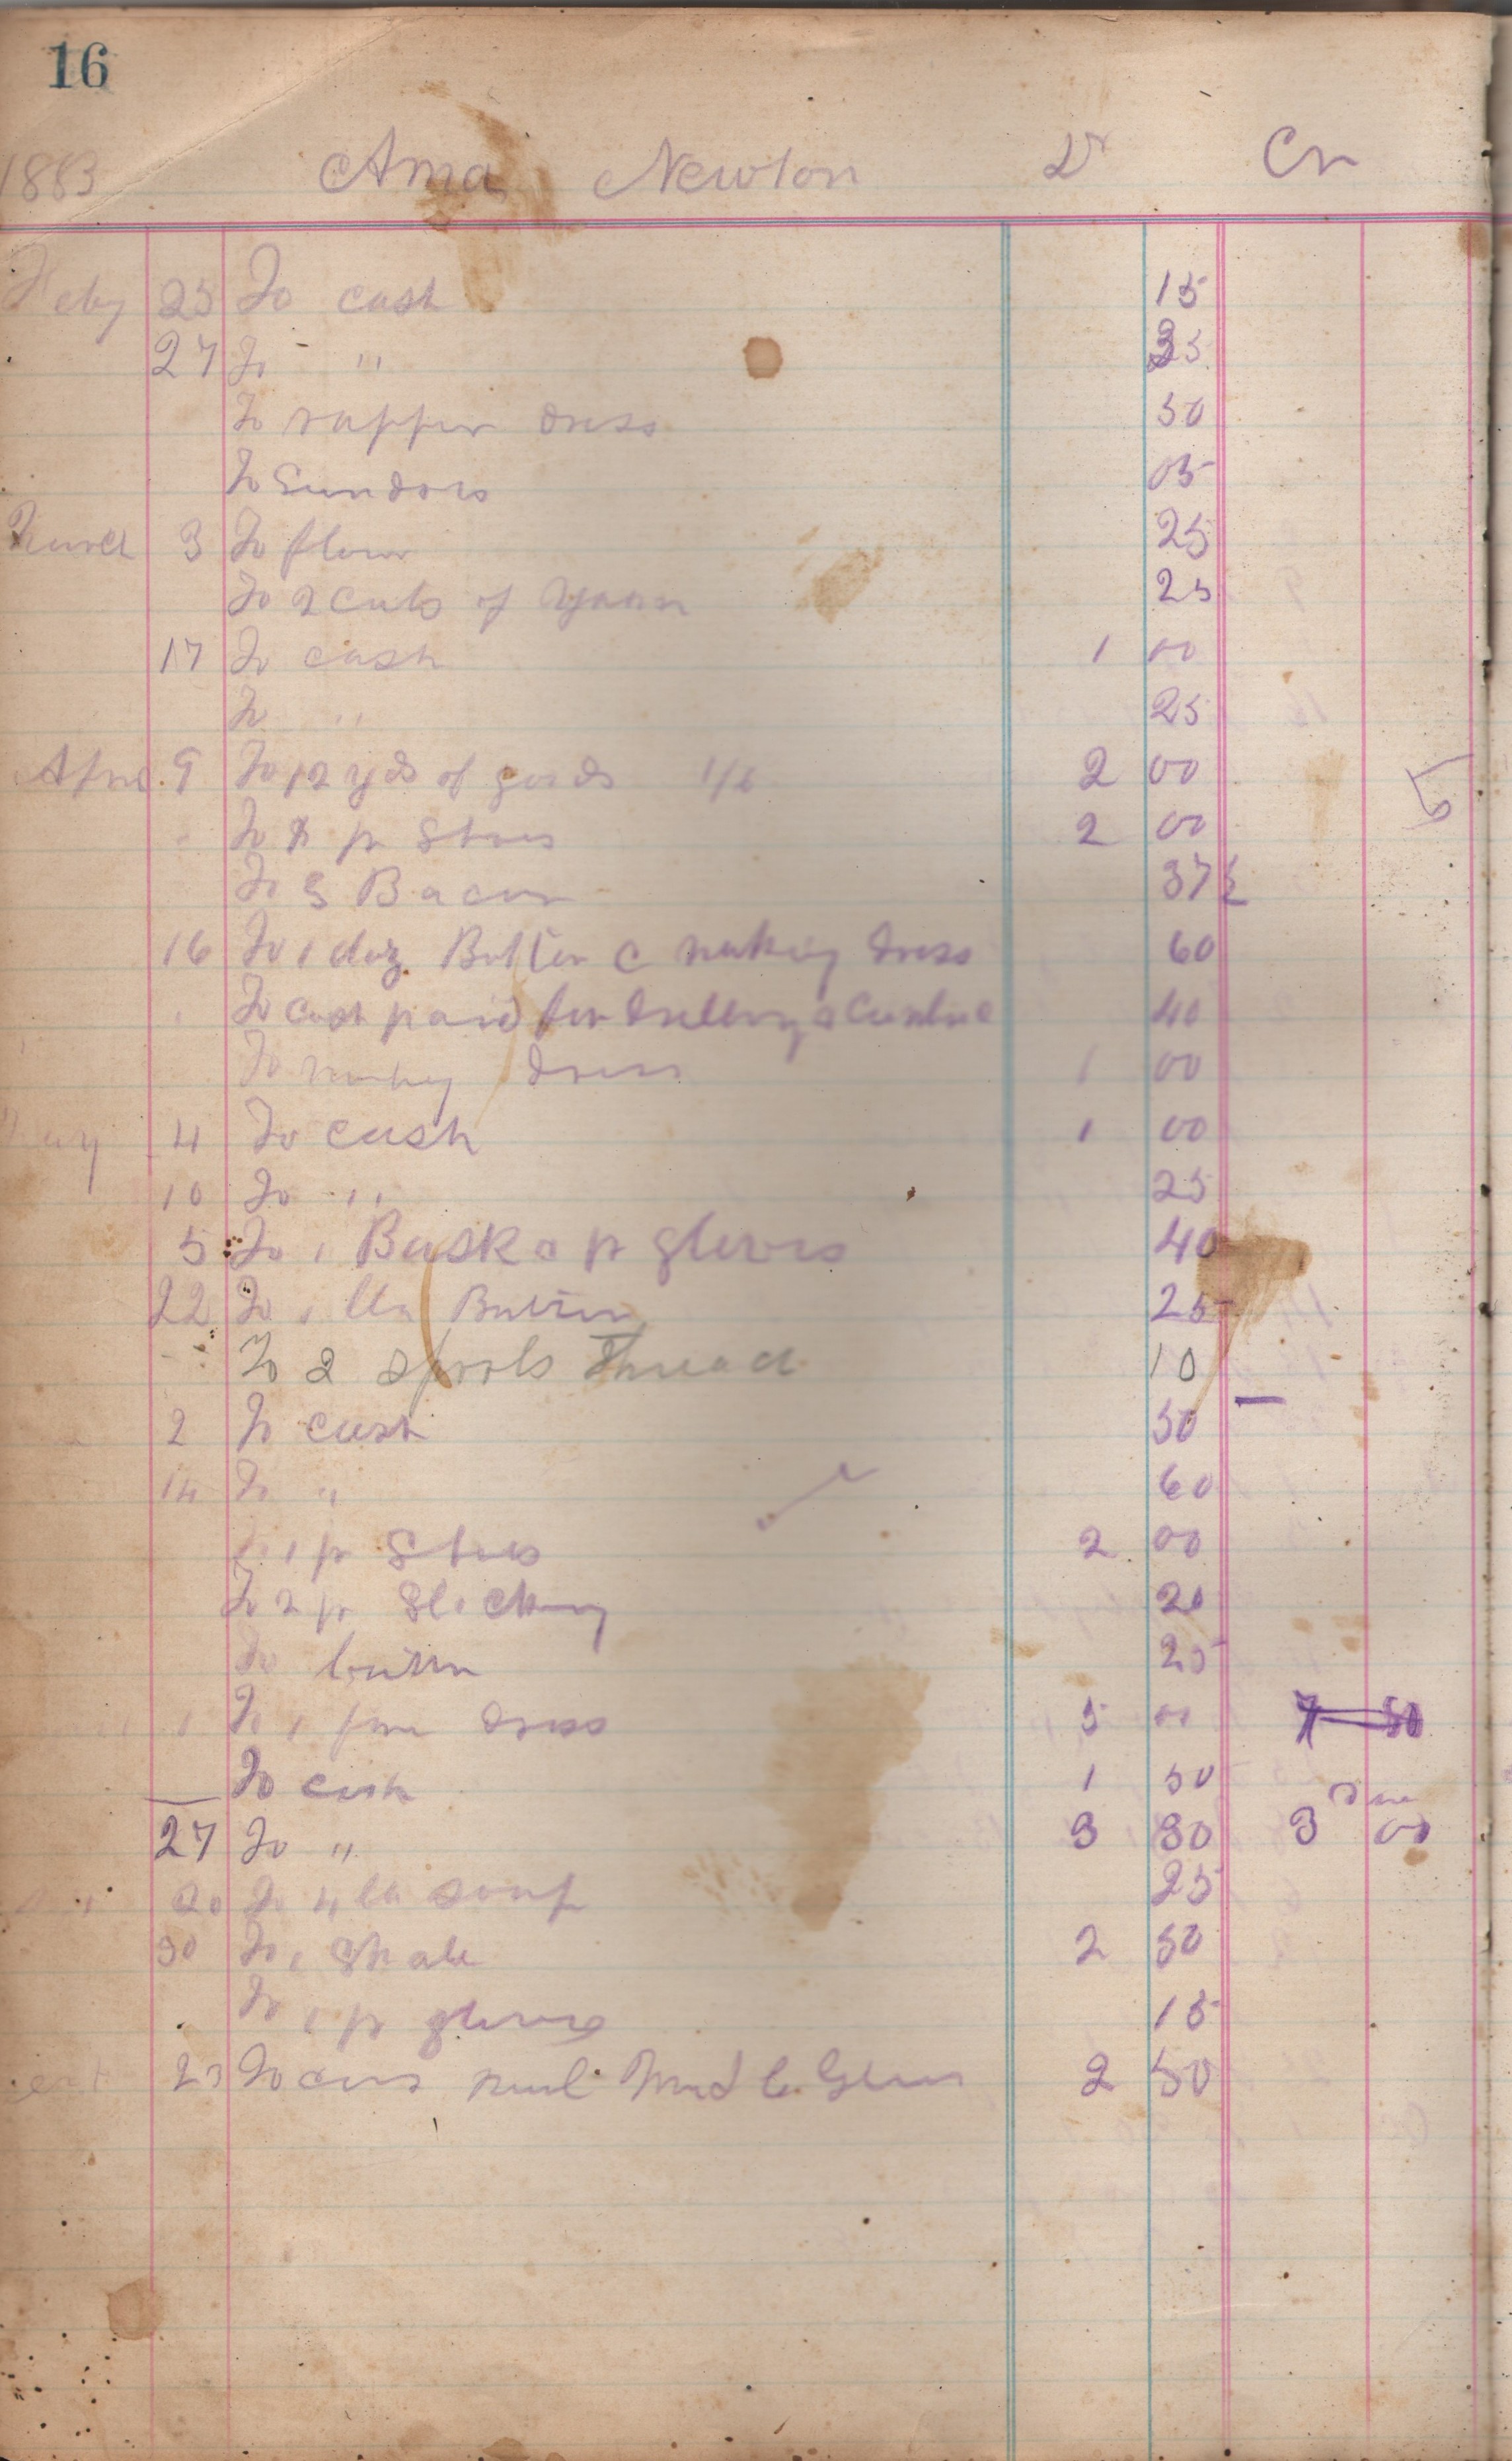 16
1883 Ama Newton Dr Cr
Feby 25 To cash 15
27 To " 25
To rapper dress 50
To Sundors 05
March 3 To flour 25
To 2 Cuts of Yaarn 25
17 To cash 1 00
To " 25
April 9 To 12 yds of goods 1/6 2 00
To p Shoes 2 00
To 3 Bacon 37½
16 To 1 doz Botten & making dress 60
To cash paid for & 40
To making dress 1 00
May 4 To cash 1 00
10 To " 25
5 To 1 Bask & p gloves 40
22 To 1 25
To 2 spools Thread 10
2 To cash 50
14 To " 60
To 1 p Shoes 2 00
To 2 p Stocking 20
To 25
1 To 1 fine dress 5 00 7 50
To cash 1 50
Due
27 To " 3 30 3 00
20 To 4 lb soap 25
30 To 1 2 50
To 1 p gloves 15
Sept 23 To 2 50